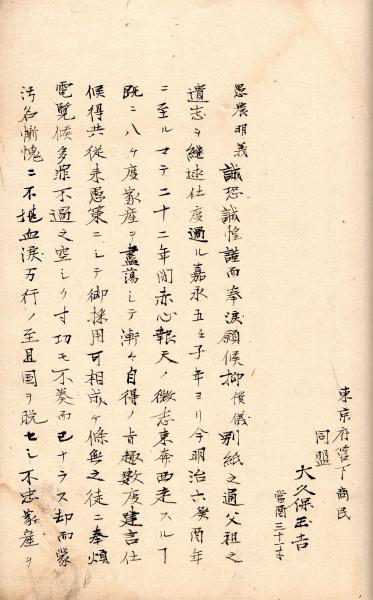 東京府管下商民
同盟
大久保玉吉
當酉三十一才
愚農明義誠恐誠惶謹而奉涙願候抑慣儀別紙之通父祖之
遺志ヲ継述仕度過ル嘉永五壬子年ヨリ今明治六癸酉年
ニ至ルマテ二十二年間赤心報天ノ微志東奔西走スル丁
既ニ八ケ度家産ヲ盡蕩シテ漸々自得ノ旨極数度建言仕
候得共従来愚策ニシテ御採用可相成ケ條無之徒ニ奉煩
電覧候多罪不過之空シク寸功モ不奏而已ナラス却而蒙
汚名慚愧ニ不堪血涙万行ノ至且国ヲ脱セシ不忠家産ヲ